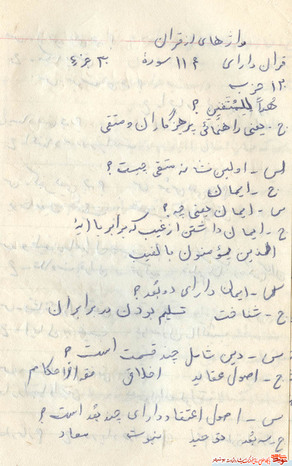 واژه های از قران
قران دارای ۱۱۴ سوره ۳۰ جزء
۱۲۰ حزب
هُدیً لِلمُتَّقین ؟
ج - یعنی راهنمائی پرهیزگاران و متقی
س - اولین نشانه متقی چیست ؟
ج - ایمان
س - ایمان یعنی چه ؟
ج - ایمان داشتن از غیب که برابر با ایهٔ
الذین یؤمنون بالغیب
س - ایمان دارای دو بُعد ؟
ج - شناخت تسلیم بودن در برابر ان
س - دین شامل چند قسمت است ؟
ج - اصول عقاید اخلاق فقه الاحکام
س - اصول اعتقاد دارای چند بُعد است ؟
ج - سه بُعد توحید نبوت معاد